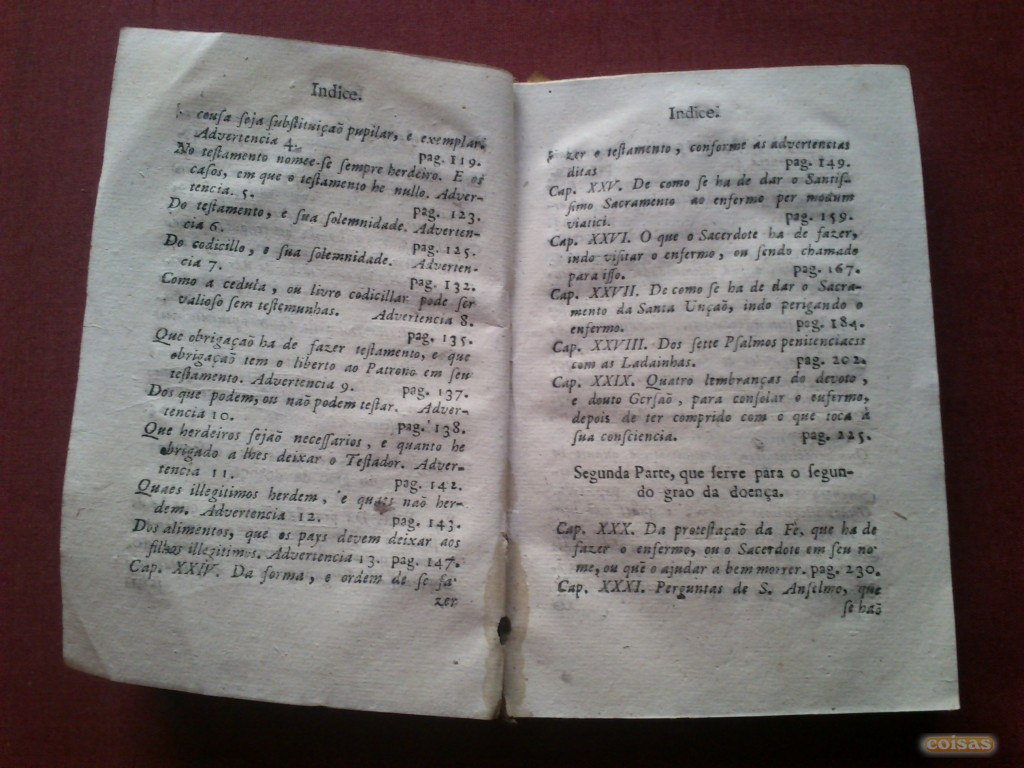 Indice.
cousa seja substituiçaõ pupilar, e exemplar.
Advertencia 4. pag. 119.
No testamento nomee-se sempre herdeiro. E os
casos, em que o testamento he nullo. Adver-
tencia. 5. pag. 123.
Do testamento, e sua solemnidade. Adverten-
cia 6. pag. 125.
Do codicillo, e sua solemnidade. Adverten-
cia 7. pag. 132.
Como a cedula, ou livro codicillar pode ser
valioso sem testemunhas. Advertencia 8.
pag. 135.
Que obrigaçaõ ha de fazer testamento, e que
obrigaçaõ tem o liberto ao Patrono em seu
testamento. Advertencia 9. pag. 137.
Dos que podem, ou naõ podem testar. Adver-
tencia 10. pag. 138.
Que herdeiros sejaõ necessarios, e quanto he
obrigado a lhes deixar o Testador. Adver-
tencia 11. pag. 142.
Quaes illegitimos herdem, e quaes naõ her-
dem. Advertencia 12. pag. 143.
Dos alimentos, que os pays devem deixar aos
filhos illegitimos. Advertencia 13. pag. 147.
Cap. XXIV. Da forma, e ordem de se fa-
zer
Indice.
zer o testamento, conforme as advertencias
ditas pag. 149.
Cap. XXV. De como se ha de dar o Santis-
simo Sacramento ao enfermo per modum
viatici. pag. 159.
Cap. XXVI. O que o Sacerdote ha de fazer,
indo visitar o enfermo, ou sendo chamado
para isso. pag. 167.
Cap. XXVII. De como se ha de dar o Sacra-
mento da Santa Unçaõ, indo perigando o
enfermo. pag. 184.
Cap. XXVIII. Dos sette Psalmos penitenciaess
com as Ladainhas. pag. 202.
Cap. XXIX. Quatro lembranças do devoto,
e douto Gersaõ, para consolar o enfermo,
depois de ter comprido com o que toca à
sua consciencia. pag. 225.
Segunda Parte, que serve para o segun-
do grao da doença.
Cap. XXX. Da protestaçaõ da Fé, que ha de
fazer o enfermo, ou o Sacerdote em seu no-
me, ou que o ajudar a bem morrer. pag. 230.
Cap. XXXI. Perguntas de S. Anselmo, que
se haõ
coisas